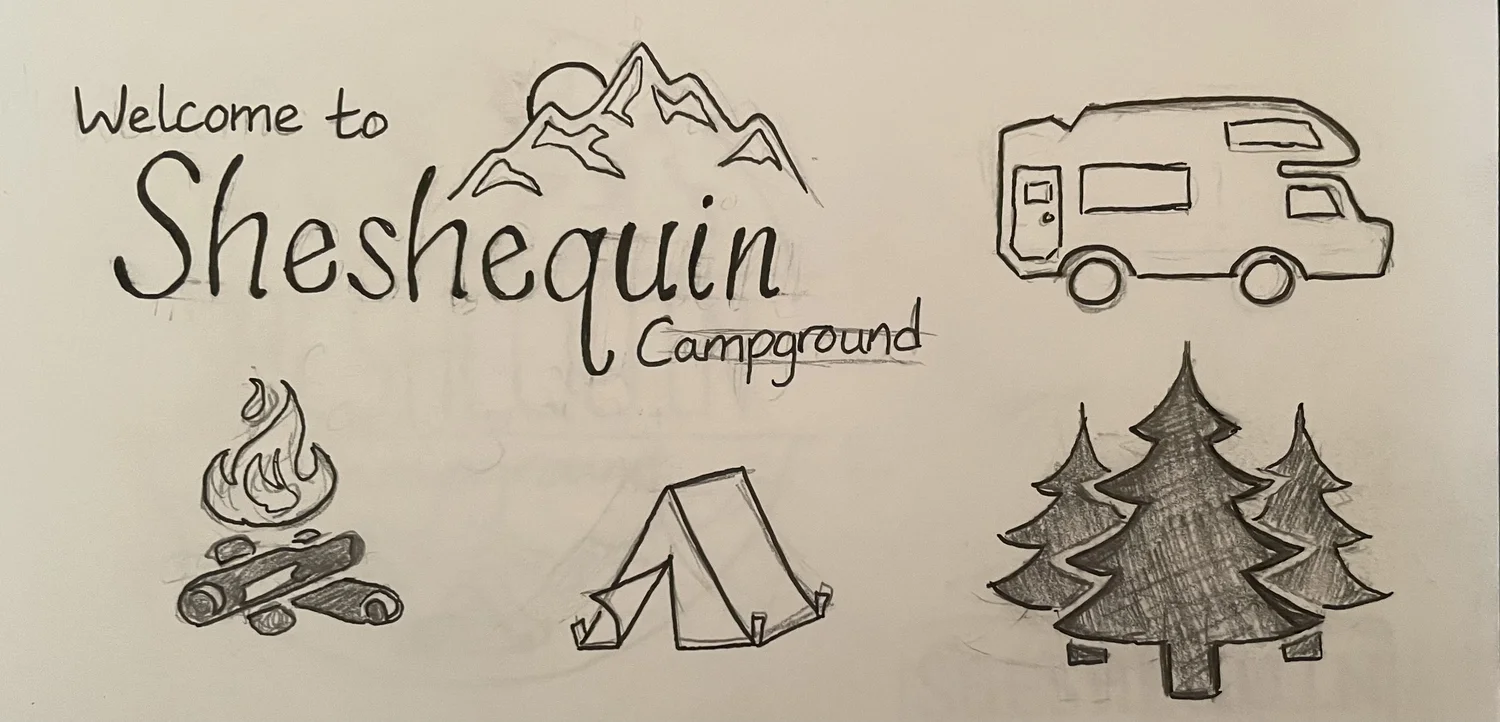 Welcome to
Sheshequin
Campground